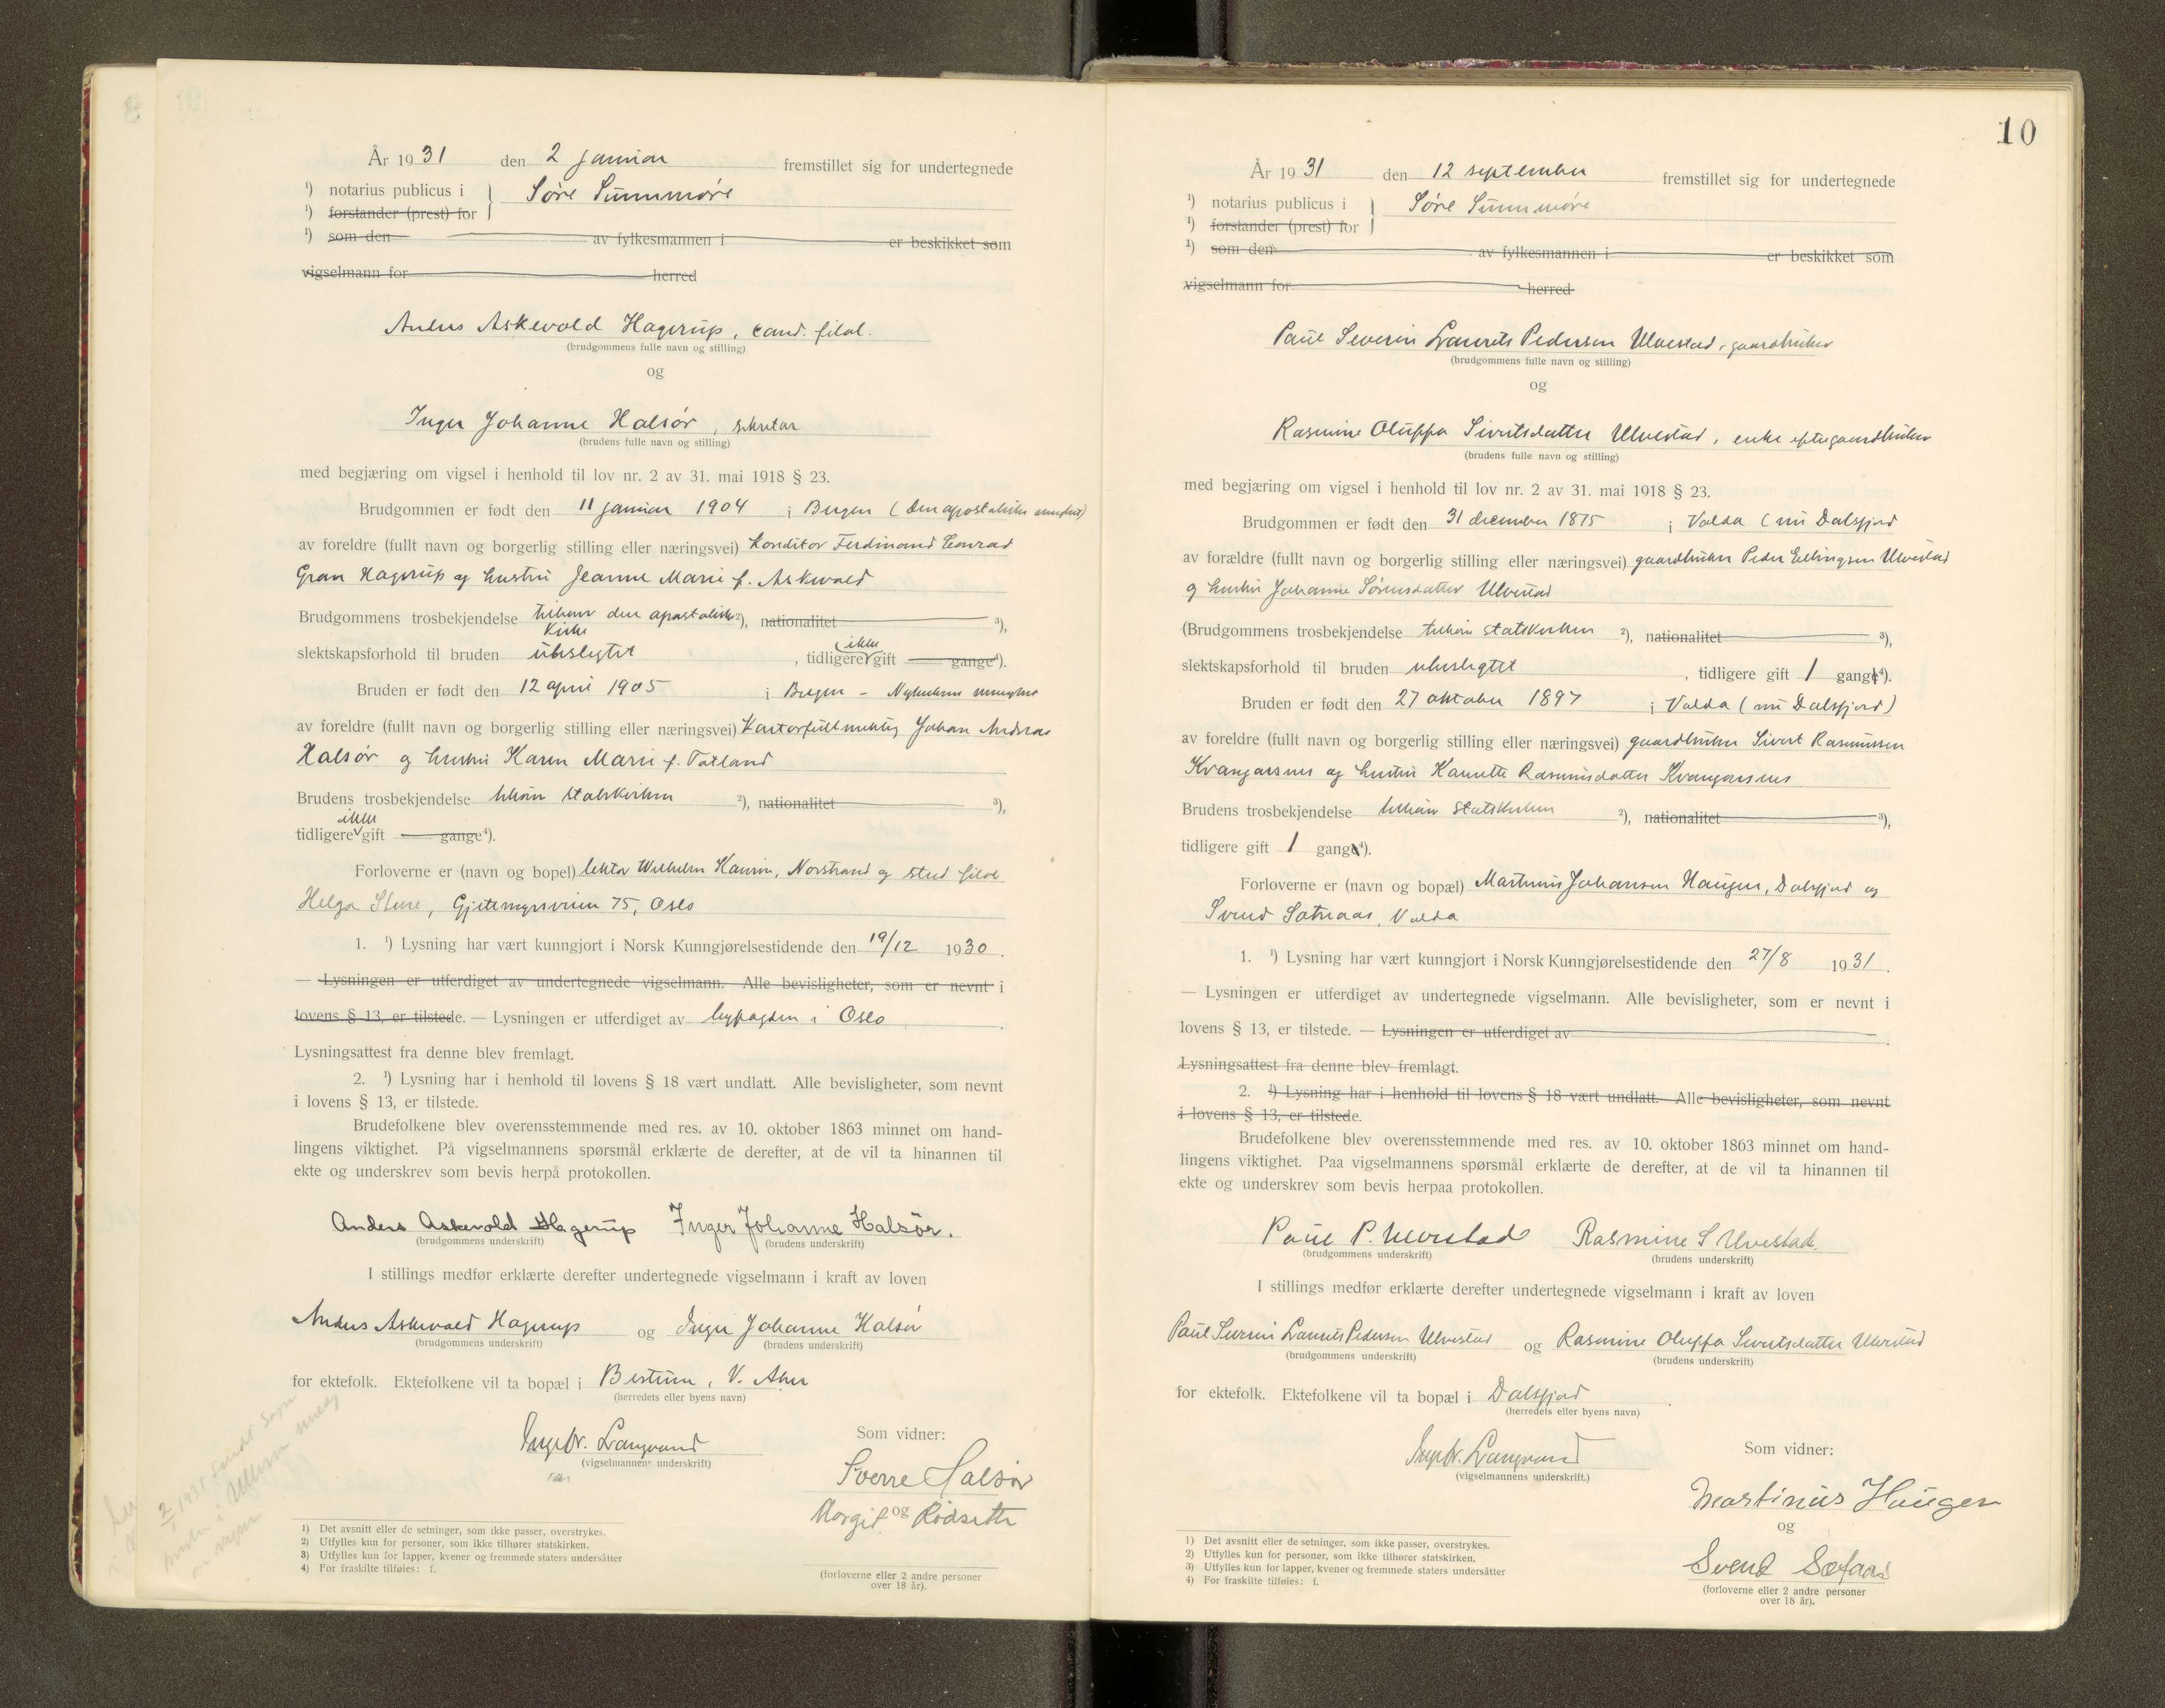 År 1931 den 2 januar fremstillet sig for undertegnede
¹) notarius publicus i } Søre Sunnmøre
¹) forstander (prest) for
¹) som den av fylkesmannen i er beskikket som
vigselmann for herred
Anders Askevold Hagerup, cand. filol.
(brudgommens fulle navn og stilling)
og
Inger Johanne Halsør, sekretær
(brudens fulle navn og stilling)
med begjæring om vigsel i henhold til lov nr. 2 av 31. mai 1918 § 23.
Brudgommen er født den 11 januar 1904 i Bergen (den apostoliske menighet)
av foreldre (fullt navn og borgerlig stilling eller næringsvei) konditor Ferdinand Conrad
Gran Hagerup og hustru Jeanne Marie f. Askevold
Brudgommens trosbekjendelse tilhører den apostoliske ²), nationalitet ³),
kirke
slektskapsforhold til bruden ubeslegtet , tidligere ikke gift gange⁴).
Bruden er født den 12 april 1905 i Bergen - Nykirkens menighet
av foreldre (fullt navn og borgerlig stilling eller næringsvei) Kontorfullmektig Johan Andreas
Halsør og hustru Karen Marie f. Totland
Brudens trosbekjendelse tilhører statskirken ²), nationalitet ³),
ikke
tidligere gift gange⁴).
Forloverne er (navn og bopel) lektor Wilhelm , Norstrand og stud filol
Helga , Gjetemyrsveien 75, Oslo
1. ¹) Lysning har vært kunngjort i Norsk Kunngjørelsestidende den 19/12 1930.
— Lysningen er utferdiget av undertegnede vigselmann. Alle bevisligheter, som er nevnt i
lovens § 13, er tilstede. — Lysningen er utferdiget av byfogden i Oslo .
Lysningsattest fra denne blev fremlagt.
2. ¹) Lysning har i henhold til lovens § 18 vært undlatt. Alle bevisligheter, som nevnt
i lovens § 13, er tilstede.
Brudefolkene blev overensstemmende med res. av 10. oktober 1863 minnet om hand-
lingens viktighet. På vigselmannens spørsmål erklærte de derefter, at de vil ta hinannen til
ekte og underskrev som bevis herpå protokollen.
Anders Askevold Hagerup Inger Johanne Halsör.
(brudgommens underskrift) (brudens underskrift)
I stillings medfør erklærte derefter undertegnede vigselmann i kraft av loven
Anders Askevold Hagerup og Inger Johanne Halsør
(brudgommens underskrift) (brudens underskrift)
for ektefolk. Ektefolkene vil ta bopæl i Bestum, V. Aker
(herredets eller byens navn)
Ingbr. Langvand
(vigselmannens underskrift)
Som vidner:
Sverre Halsør
og
Margit Rødseth
(forloverne eller 2 andre personer
over 18 år).
1) Det avsnitt eller de setninger, som ikke passer, overstrykes.
2) Utfylles kun for personer, som ikke tilhører statskirken.
3) Utfylles kun for lapper, kvener og fremmede staters undersåtter
4) For fraskilte tilføies: f.
10
År 1931 den 12 september fremstillet sig for undertegnede
¹) notarius publicus i } Søre Sunnmøre
¹) forstander (prest) for
¹) som den av fylkesmannen i er beskikket som
vigselmann for herred
Paul Severin Laurits Pedersen Ulvestad, gaardbruker
(brudgommens fulle navn og stilling)
og
Rasmine Oluffa Sivertsdatter Ulvestad, enke efter gaardbruker
(brudens fulle navn og stilling)
med begjæring om vigsel i henhold til lov nr. 2 av 31. mai 1918 § 23.
Brudgommen er født den 31 december 1875 i Volda (nu Dalsfjord
av forældre (fullt navn og borgerlig stilling eller næringsvei) gaardbruker Peder Ellingsen Ulvestad
og hustru Johanne Sørensdatter Ulvestad
(Brudgommens trosbekjendelse tilhører statskirken ²), nationalitet ³),
slektskapsforhold til bruden ubeslegtet , tidligere gift 1 gang⁴).
Bruden er født den 27 oktober 1897 i Volda (nu Dalsfjord)
av foreldre (fullt navn og borgerlig stilling eller næringsvei) gaardbruker Sivert Rasmussen
Kvangarsnes og hustru Hanette Rasmusdatter Kvangarsnes
Brudens trosbekjendelse tilhører statskirken ²), nationalitet ³),
tidligere gift 1 gang⁴).
Forloverne er (navn og bopæl) Martinus Johansen Haugen, Dalsfjord og
Svend Sætraas, Volda
1. ¹) Lysning har vært kunngjort i Norsk Kunngjørelsestidende den 27/8 1931.
— Lysningen er utferdiget av undertegnede vigselmann. Alle bevisligheter, som er nevnt i
lovens § 13, er tilstede. — Lysningen er utferdiget av .
Lysningsattest fra denne blev fremlagt.
2. ¹) Lysning har i henhold til lovens § 18 vært undlatt. Alle bevisligheter, som nevnt
i lovens § 13, er tilstede.
Brudefolkene blev overensstemmende med res. av 10. oktober 1863 minnet om hand-
lingens viktighet. Paa vigselmannens spørsmål erklærte de derefter, at de vil ta hinannen til
ekte og underskrev som bevis herpaa protokollen.
Paul P. Ulvestad Rasmine S Ulvestad.
(brudgommens underskrift) (brudens underskrift)
I stillings medfør erklærte derefter undertegnede vigselmann i kraft av loven
Paul Severin Laurits Pedersen Ulvestad og Rasmine Oluffa Sivertsdatter Ulvestad
(brudgommens underskrift) (brudens underskrift)
for ektefolk. Ektefolkene vil ta bopæl i Dalsfjord .
(herredets eller byens navn)
Ingbr. Langvand
(vigselmannens underskrift.)
Som vidner:
Martinus Haugen
og
Svend
(forloverne eller 2 andre personer
over 18 år).
1) Det avsnitt eller de setninger, som ikke passer, overstrykes.
2) Utfylles kun for personer, som ikke tilhører statskirken.
3) Utfylles kun for lapper, kvener og fremmede staters undersåtter
4) For fraskilte tilføies: f.